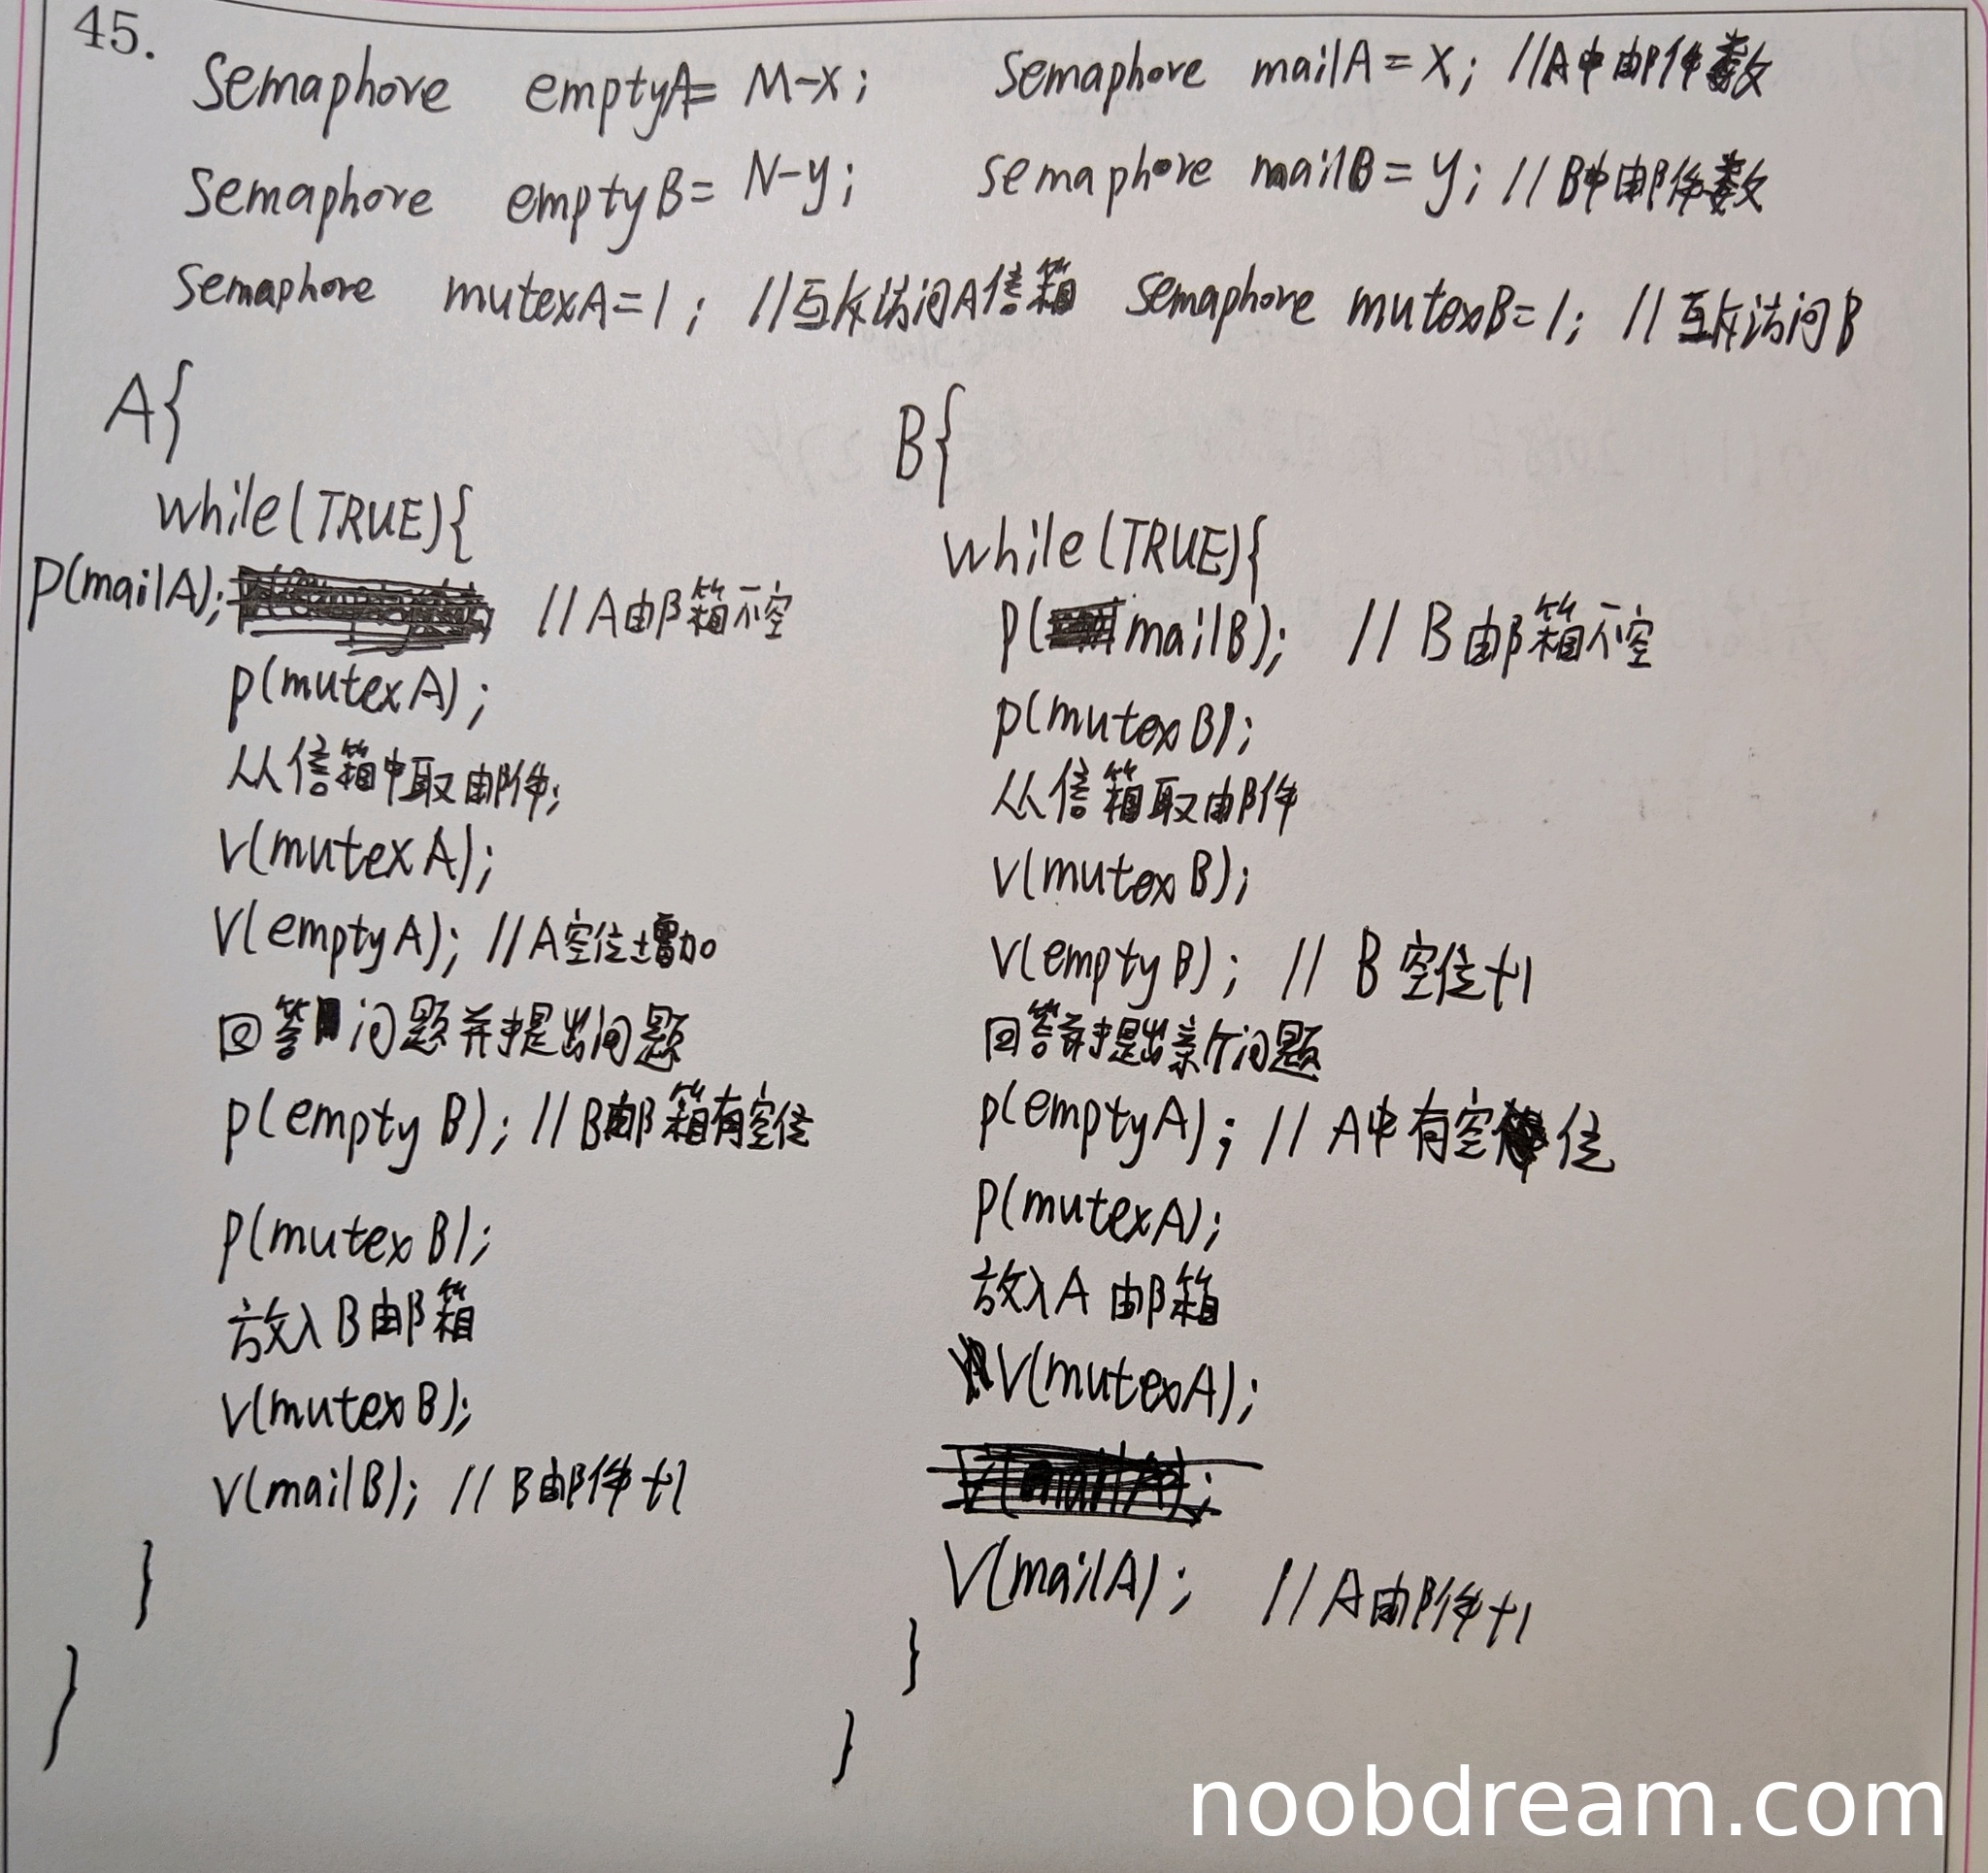 45.
Semaphore emptyA = M-x; Semaphore mailA = x; //A中邮件数
Semaphore emptyB = N-y; semaphore mailB = y; //B中邮件数
Semaphore mutexA=1; //互斥访问A信箱 Semaphore mutexB=1; //互斥访问B
A{
while(TRUE){
P(mailA); //A邮箱不空
p(mutexA);
从信箱中取邮件;
v(mutexA);
V(emptyA); //A空位增加
回答问题并提出问题
p(empty B); //B邮箱有空位
p(mutexB);
放入B邮箱
v(mutexB);
v(mailB); //B邮件+1
}
}
B{
while(TRUE){
p(mailB); //B邮箱不空
p(mutexB);
从信箱取邮件
v(mutexB);
v(emptyB); //B空位+1
回答并提出亲个问题
p(emptyA); //A中有空位
p(mutexA);
放入A邮箱
V(mutexA);
V(mailA); //A邮件+1
}
}
noobdream.com